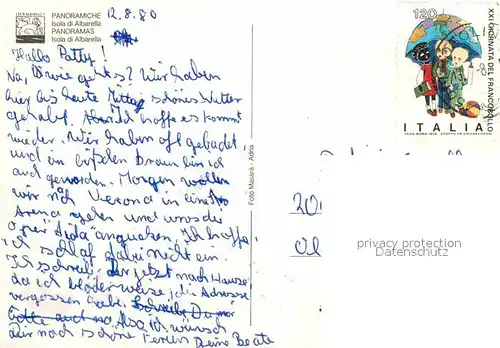 PANORAMICHE
Isola di Albarella
PANORAMAS
Isola di Albarella
12.8.80
Hallo Patty!
Na, wie geht's? Wir haben
hier bis heute Mittag schönes Wetter
gehabt. Aber ich hoffe es kommt
wieder. Wir haben oft gebadet
und ein bißchen braun bin ich
auch geworden. Morgen wollen
wir nach Verona in eine
Arena gehen und uns die
Oper "Aida" angucken. Ich hoffe,
ich schlaf dabei nicht ein.
Ich schreib Dir jetzt nach Hause,
da ich blöderweise die Adresse
vergessen hab. Schreibe Du mir
bitte auch mal. Also ich wünsch
Dir noch schöne Ferien Deine Beate
Foto Maiarà - Adria
120
XXI GIORNATA DEL FRANCOBOLLO
ITALIA
20
Ol
privacy protection
OLDTHING.de